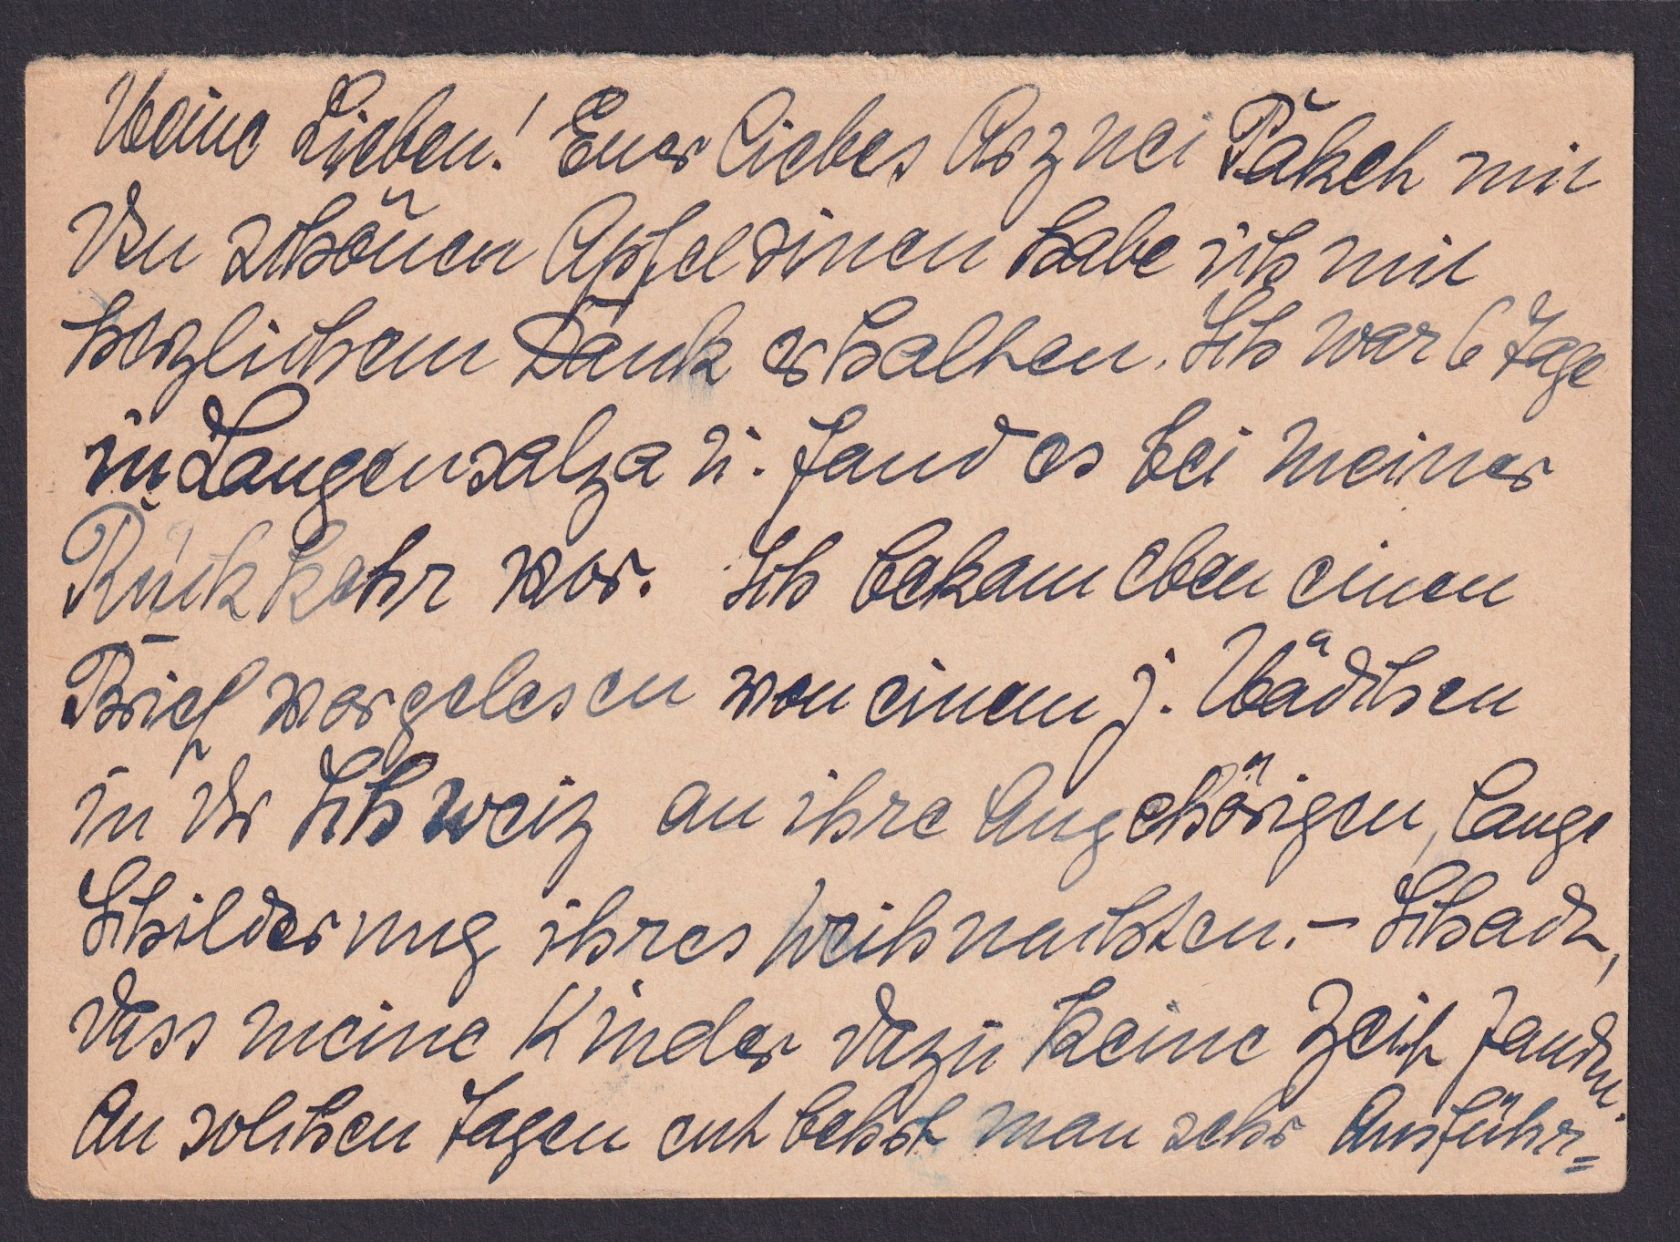 Meine Lieben! Euer liebes Arznei Päkch mit
den schönen Apfelsinen habe ich mit
herzlichem Dank erhalten. Ich war 6 Tage
in Langensalza u. fand es bei meiner
Rückkehr vor. Ich bekam eben einen
Brief vorgelesen von einem j. Mädchen
in der Schweiz an ihre Angehörigen, lange
Schilderung ihres Weihnachten. – Schade,
dass meine Kinder dazu keine Zeit fanden.
An solchen Tagen entbehrt man sehr Ausführ=